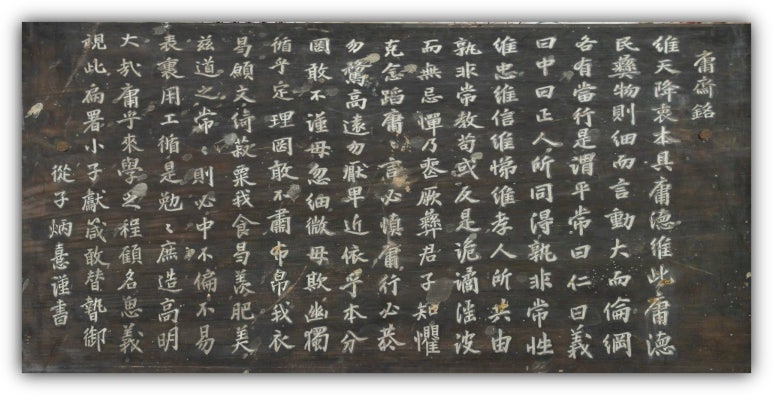 庸齋銘
維天降衷本具庸德維此庸德
民彝物則細而言動大而倫綱
各有當行是謂平常曰仁曰義
曰中曰正人所同得孰非常性
維忠維信維悌維孝人所共由
孰非常教苟或反是詭譎淫波
而無忌憚乃忝厥彝君子知懼
克念蹈庸庸言必慎庸行必恭
勿騖高遠勿厭卑近依乎本分
罔敢不謹毋忽細微毋欺幽獨
循乎定理罔敢不肅布帛我衣
曷願文綺菽粟我食曷羨肥美
玆道之常常則必中不偏不易
表裏用工循是勉勉庶造高明
大哉庸乎來學之程顧名思義
視此扁署小子獻箴敢替贄御
從子炳憙謹書